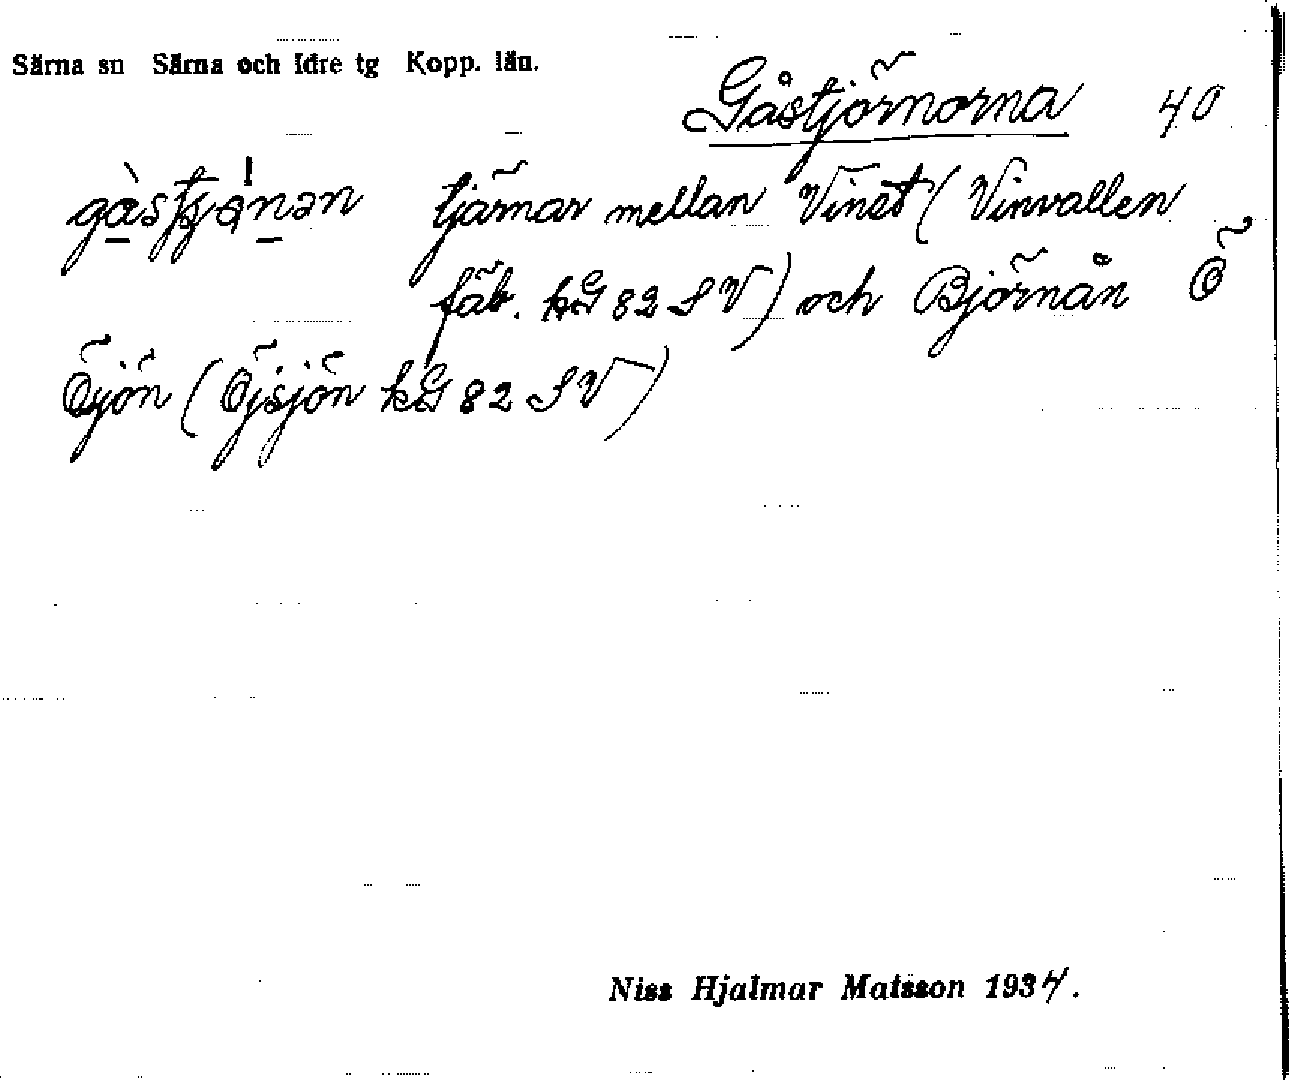 Särna sn Särna och Idre tg Kopp. län.
Gåstjörnorna 40
tjärnar mellan Vinet (Vinvallen
fäb. kG 82 SV) och Björnån Ö
Öjön (Öjsjön kG 82 SV)
Niss Hjalmar Matsson 1934.